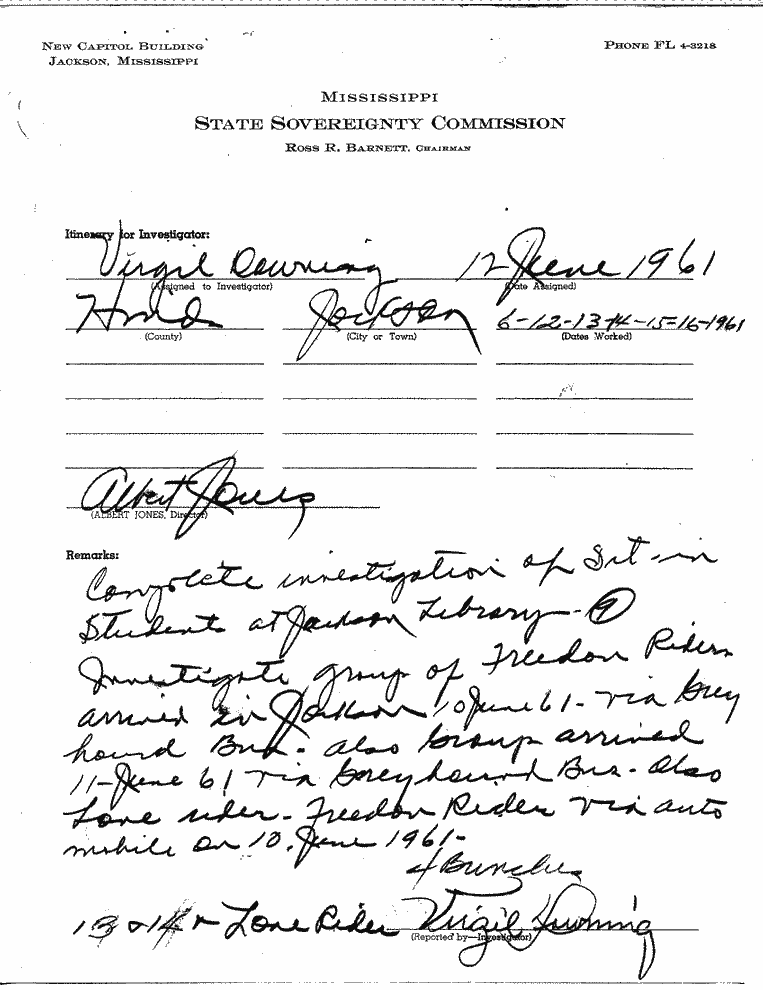 NEW CAPITOL BUILDING
JACKSON, MISSISSIPPI
PHONE FL 4-3218
MISSISSIPPI
STATE SOVEREIGNTY COMMISSION
ROSS R. BARNETT, CHAIRMAN
Itinerary for Investigator:
Virgil Downing 12 June 1961
(Assigned to Investigator) (Date Assigned)
Hinds Jackson 6-12-13-14-15-16-1961
(County) (City or Town) (Dates Worked)
Albert Jones
(ALBERT JONES, Director)
Remarks:
Complete investigation of Sit-in
Students at Jackson Library - 9
Investigate group of Freedon Riders
arrived in Jackson 10 June 61 - via Grey
hound Bus - also Group arrived
11-June 61 via Greyhound Bus - also
Lone rider - Freedon Rider via auto
mobile on 10, June 1961 -
4 Bunches
13 & 14 Lone Rider Virgil Downing
(Reported by—Investigator)